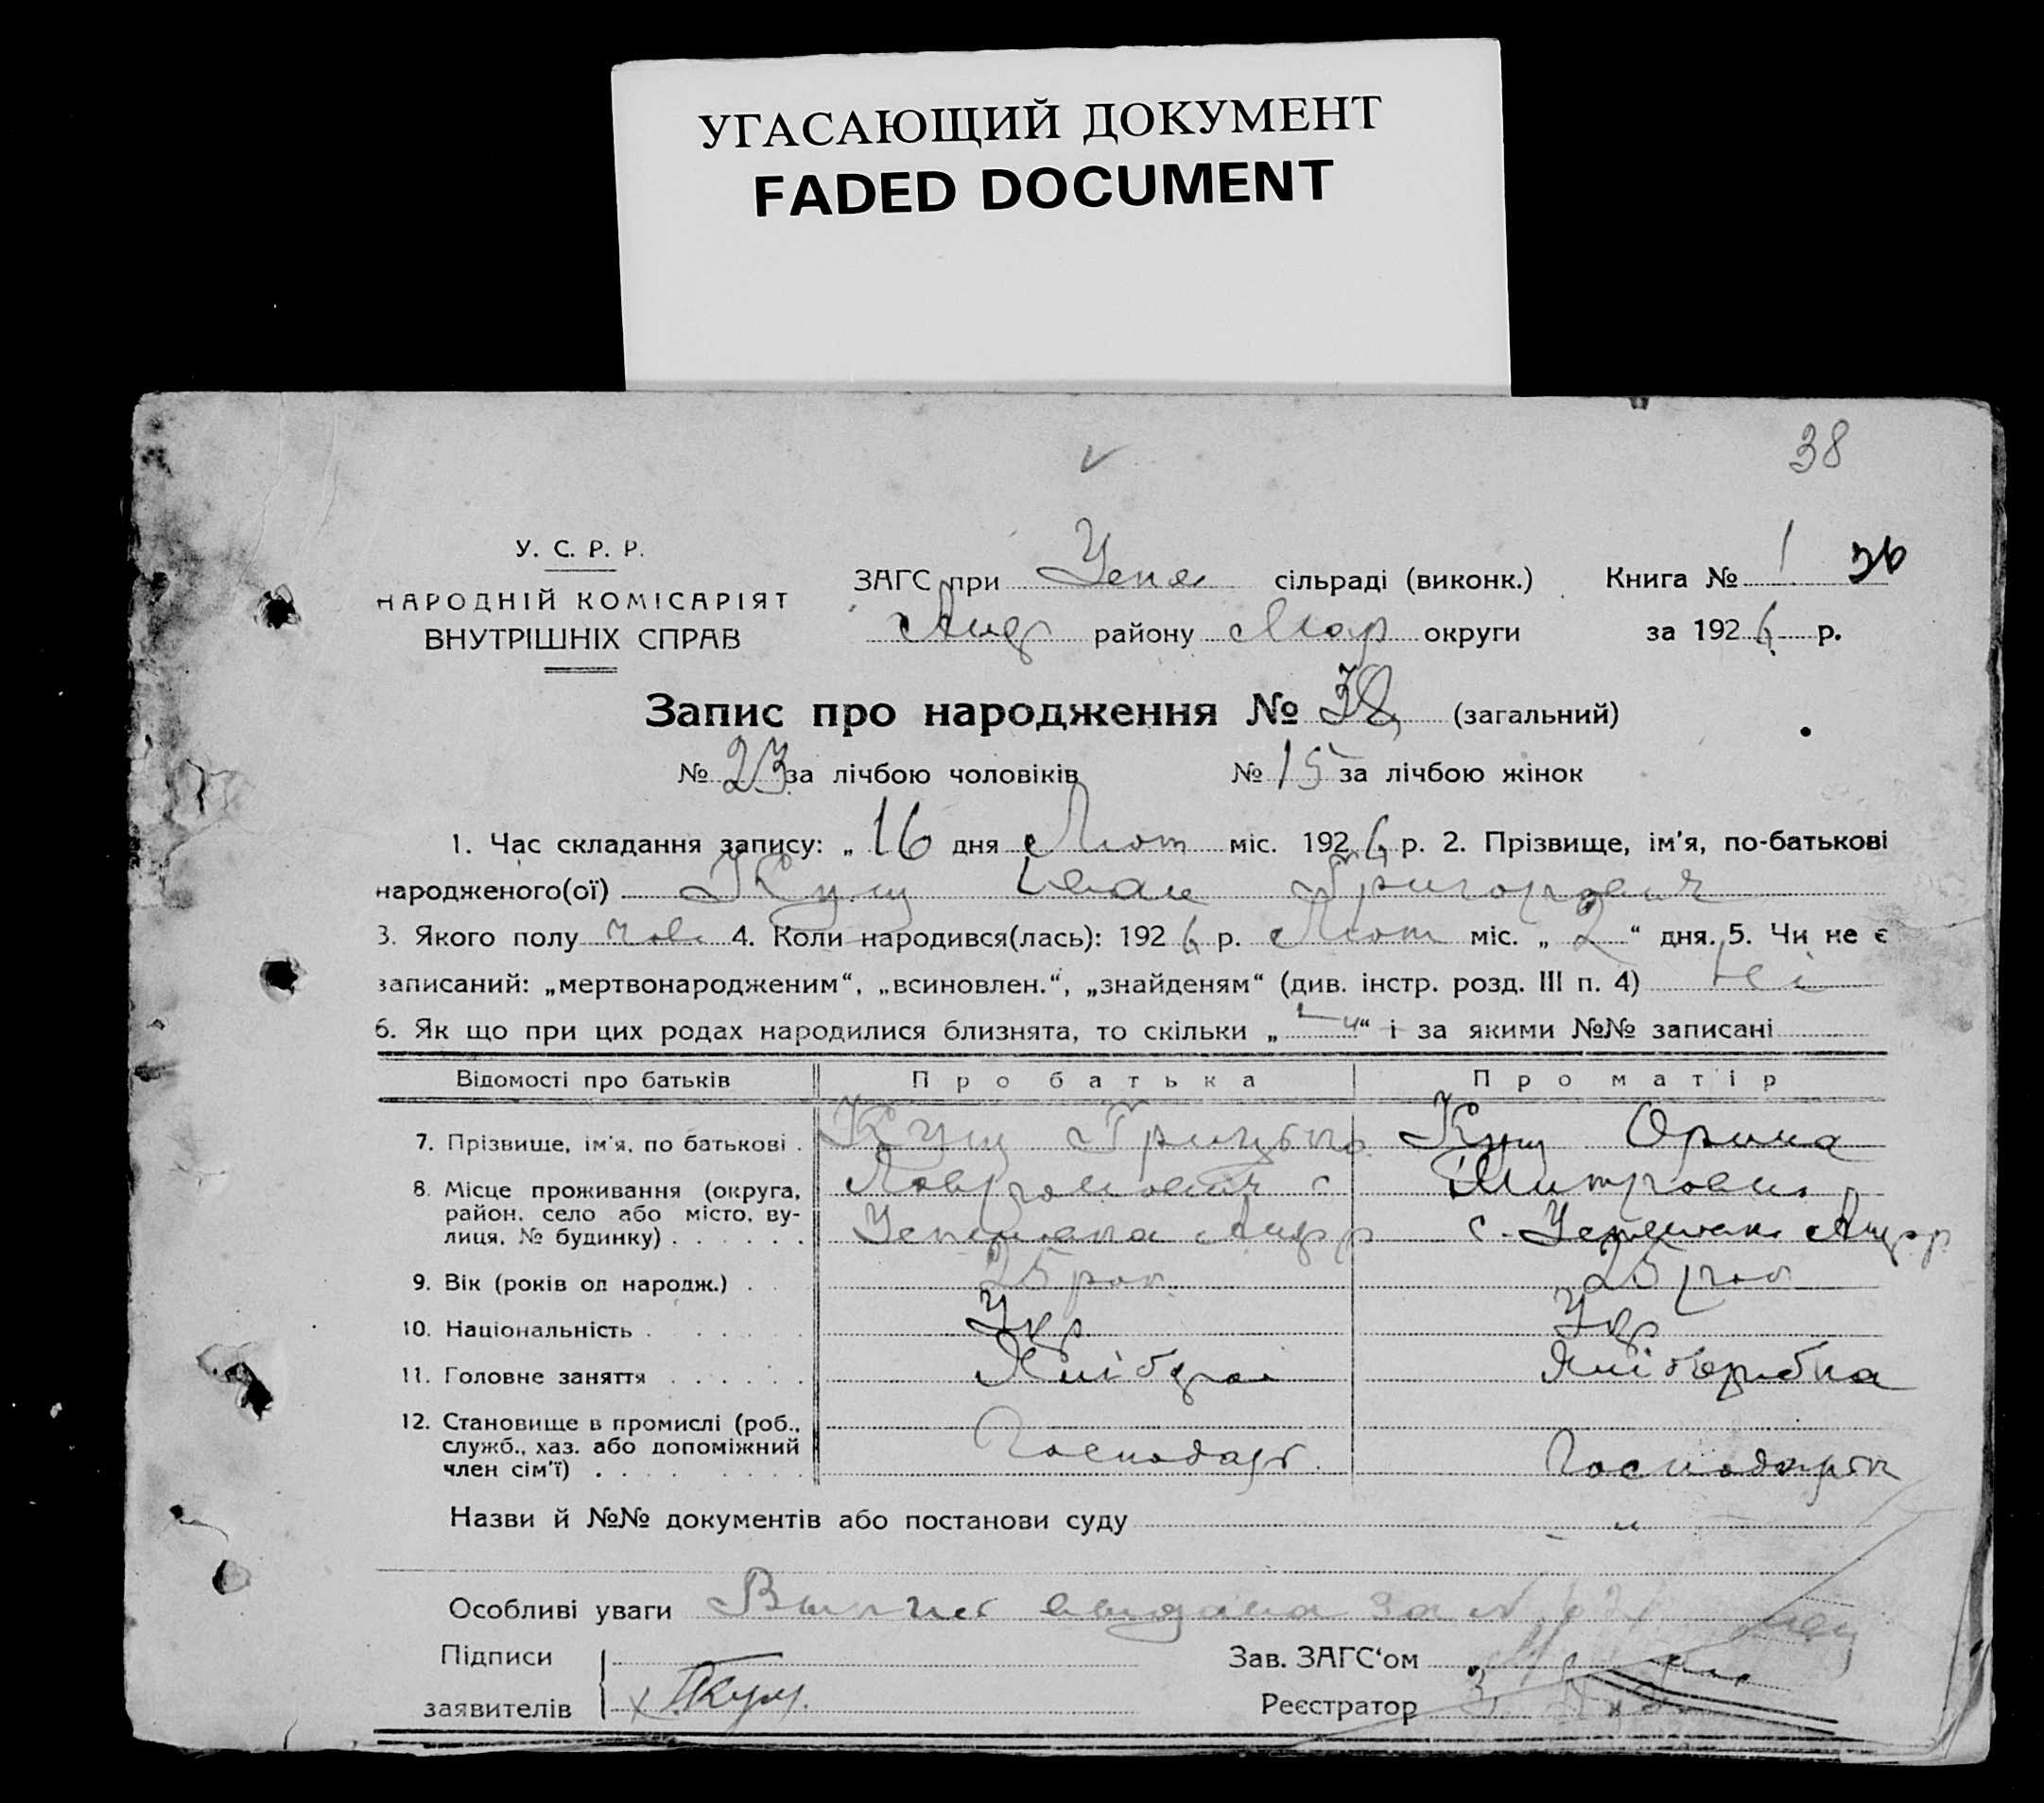 УГАСАЮЩИЙ ДОКУМЕНТ
FADED DOCUMENT
38
У. С. Р. Р.
НАРОДНІЙ КОМІСАРІЯТ
ВНУТРІШНІХ СПРАВ
ЗАГС при Успен сільраді (виконк.) Книга № 1 36
Анд району Мар округи за 1926 р.
Запис про народження № 38 (загальний)
№ 23 за лічбою чоловіків № 15 за лічбою жінок
1. Час складання запису: „ 16 дня Лют міс. 1926 р. 2. Прізвище, ім'я, по-батькові
народженого(ої) Кущ Іван Григорович
3. Якого полу чов. 4. Коли народився(лась): 1926 р. Лют міс. „ 2 “ дня. 5. Чи не є
записаний: „мертвонародженим“, „всиновлен.“, „знайденям“ (див. інстр. розд. III п. 4) Ні
6. Як що при цих родах народилися близнята, то скільки „ “ і за якими №№ записані
Відомості про батьків Про батька Про матір
7. Прізвище, ім'я, по батькові . Кущ Грицько Кущ Орина
8. Місце проживання (округа, район, село або місто, вулиця, № будинку) . . . . . . с Митровна
Успенівка Анд р с. Успенівка Анд р
9. Вік (років од народж.) . . 25 рок 25 рок
10. Національність . . . . . . Укр Укр
11. Головне заняття . . . . . . Хлібороб Хліборобка
12. Становище в промислі (роб., служб., хаз. або допоміжний член сім'ї) . . . . . Господарь Господарка
Назви й №№ документів або постанови суду - " -
Особливі уваги видана за №
Підписи Зав. ЗАГС‘ом
заявителів Г Кущ. Реєстратор